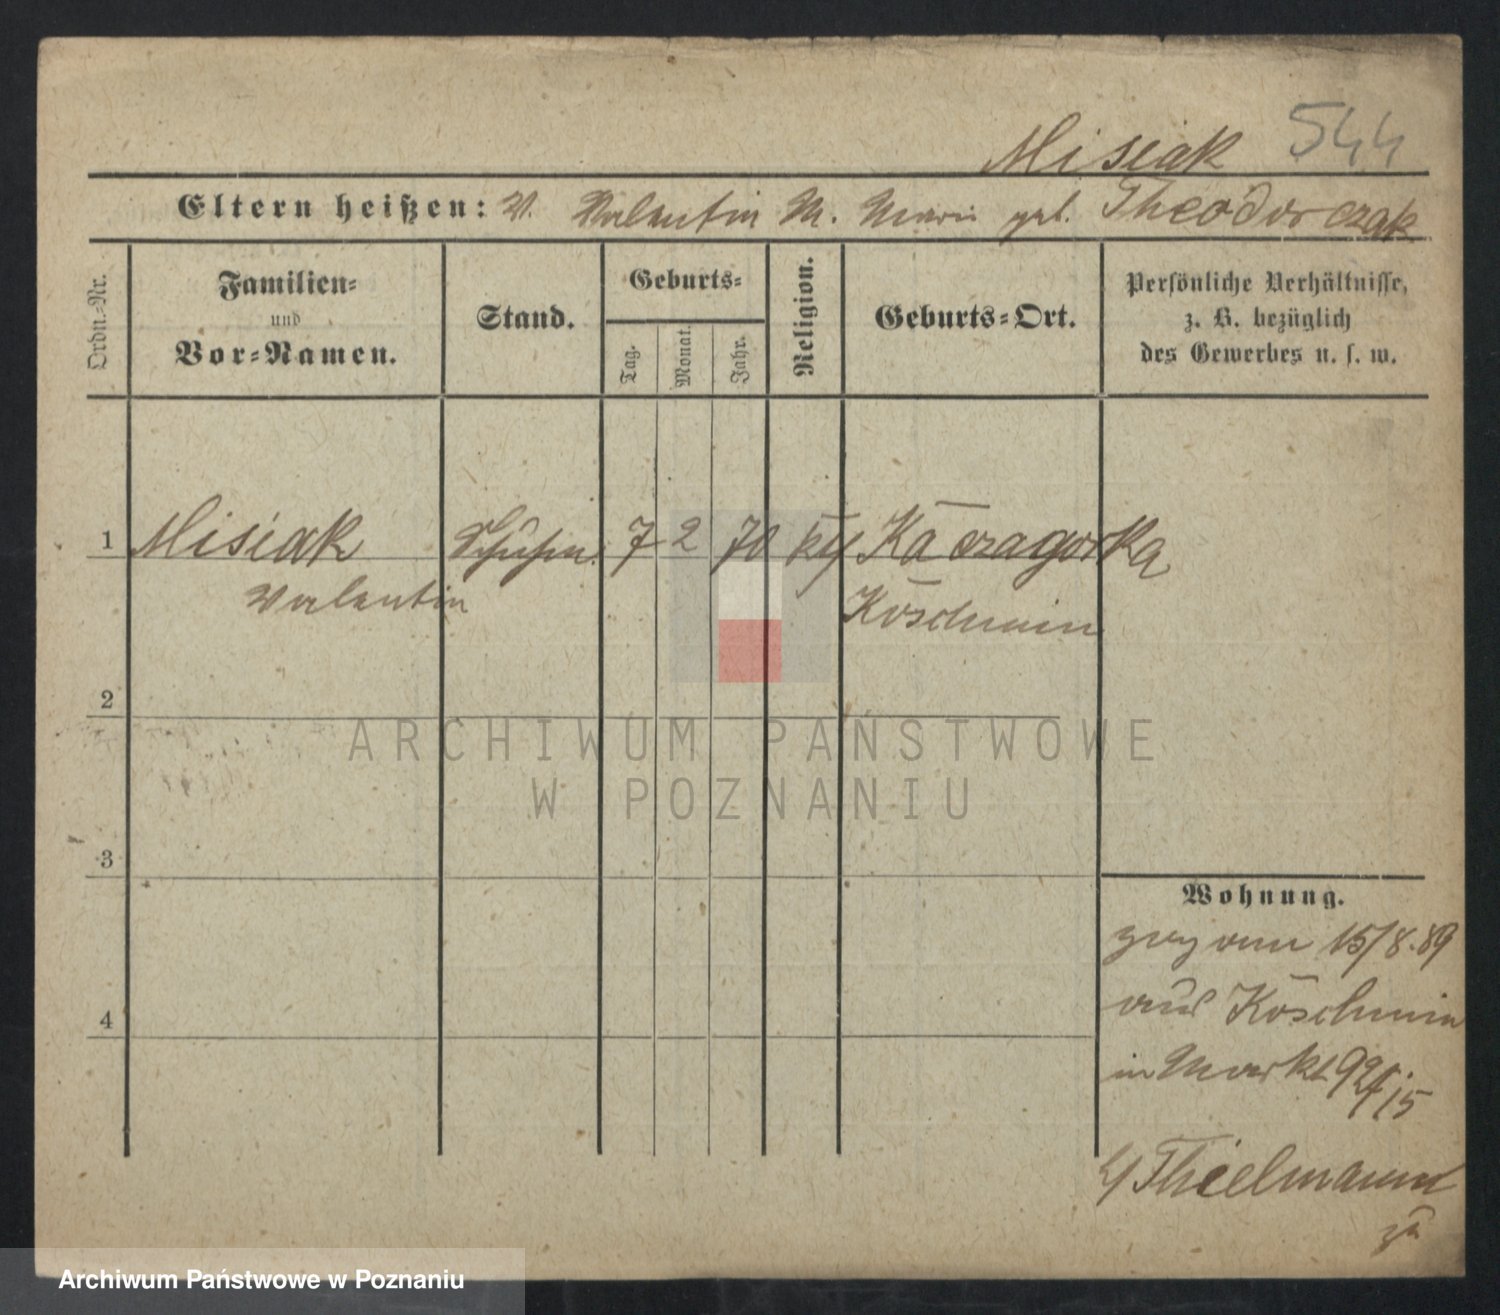 Misiak 544
Eltern heißen: V. Valentin M. Marie geb. Theodorczak
Ordn.-Nr.
Familien-
und
Vor-Namen.
Stand.
Geburts-
Tag.
Monat.
Jahr.
Religion.
Geburts-Ort.
Persönliche Verhältnisse,
z. B. bezüglich
des Gewerbes u. s. w.
1 Misiak 7 2 70 Kaczagorka
Valentin Koschmin
2
3
4
Wohnung.
15/8. 89
aus Koschmin
in Markt 92
15
Thielmann
ARCHIWUM PAŃSTWOWE
W POZNANIU
Archiwum Państwowe w Poznaniu